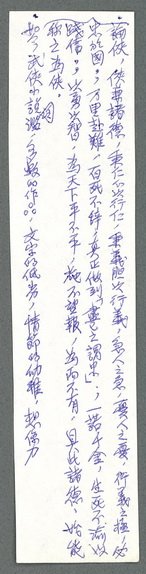 劍俠，俠兼諸德，秉仁心以行仁，秉義胆以行義，急人之急，憂人之憂，行義之極，必
忠於國；万里赴難，百死不辞，真正做到「盡己之謂忠」；一諾千金，生死不渝以
践信。以勇以智，為天下平不平，施不望報，為而不有，具此諸德，始能
称之為俠。
如今武俠小說濫，多数的作品，文字的低劣，情節的幼稚，想像力